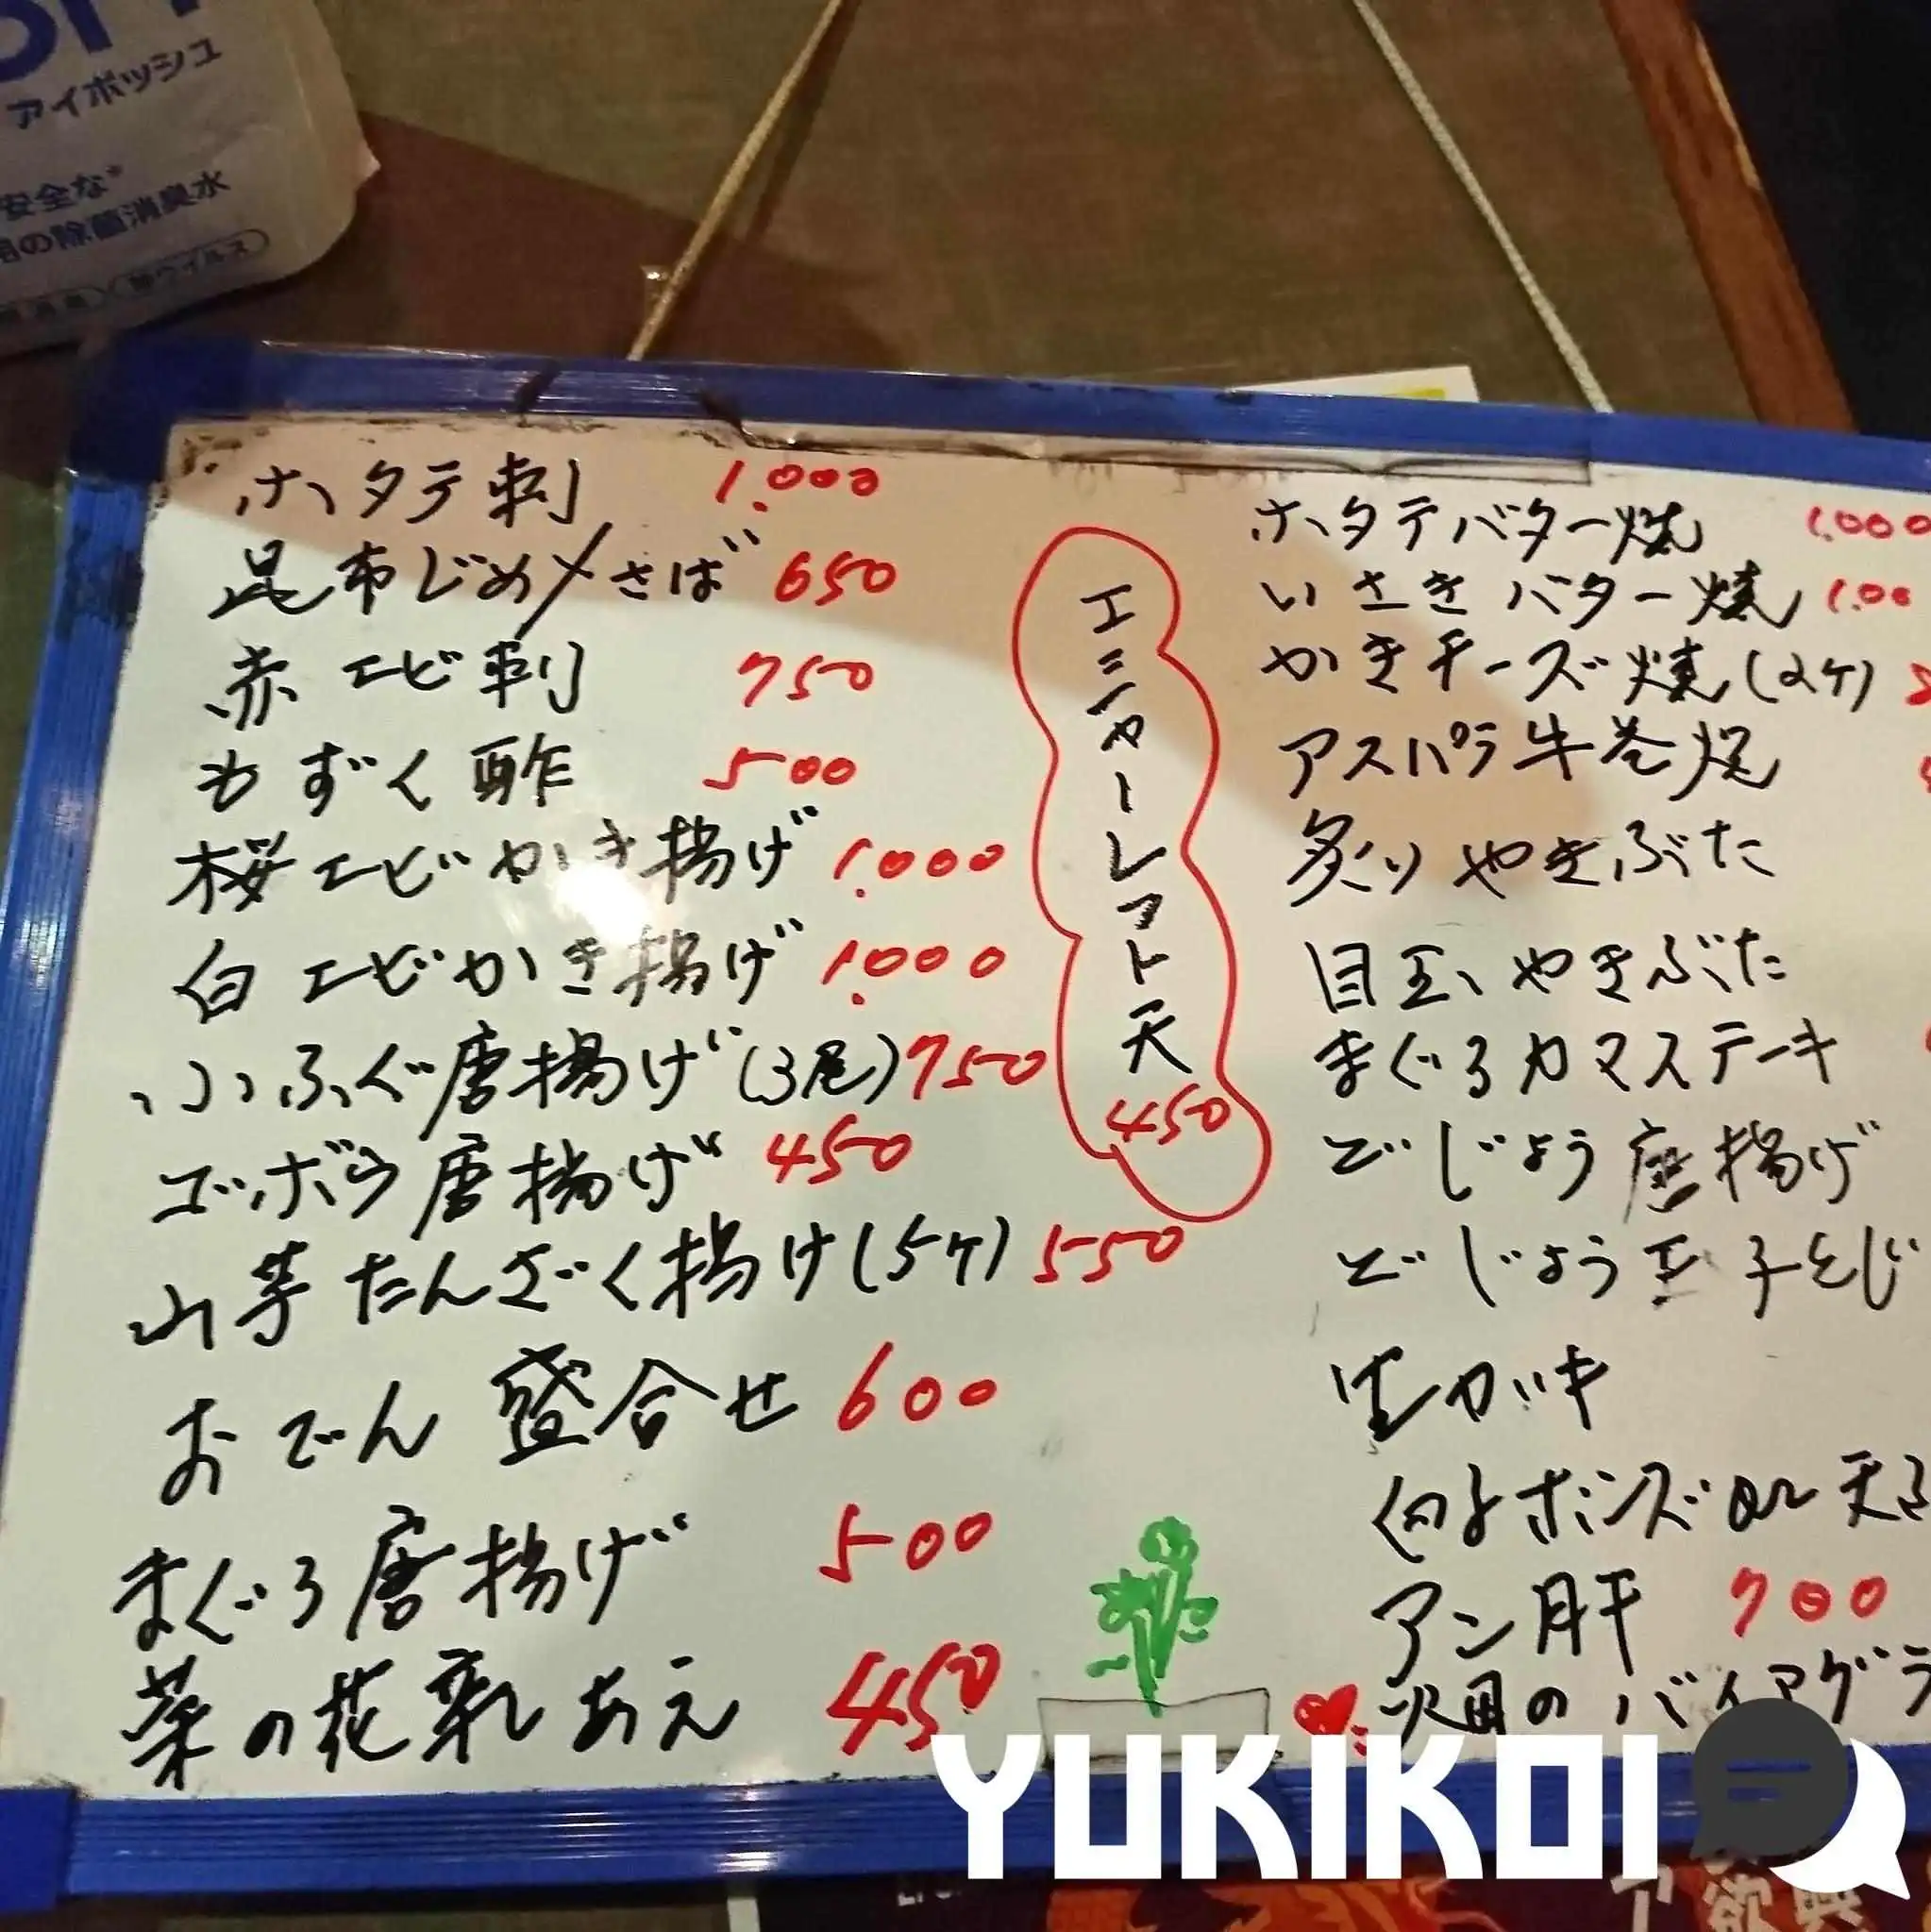 アイポッシュ
安全な
用の除菌消臭水
ホタテ刺 1.000
昆布じめ〆さば 650
赤エビ刺 750
もずく酢 500
桜エビかき揚げ 1.000
白エビかき揚げ 1.000
小ふぐ唐揚げ(3尾) 750
ゴボウ唐揚げ 450
山芋たんざく揚げ(5ケ) 550
おでん 盛合せ 600
まぐろ唐揚げ 500
菜の花 あえ 450
エシャーレット天
450
ホタテバター焼 1.000
いさきバター焼 1.00
かきチーズ焼(2ケ)
アスパラ牛巻焼
炙りやきぶた
目玉やきぶた
まぐろカマステーキ
どじょう唐揚げ
どじょう玉子とじ
生ガキ
白子ポンズor天ぷ
アン肝 700
畑のバイアグラ
YUKIKOI